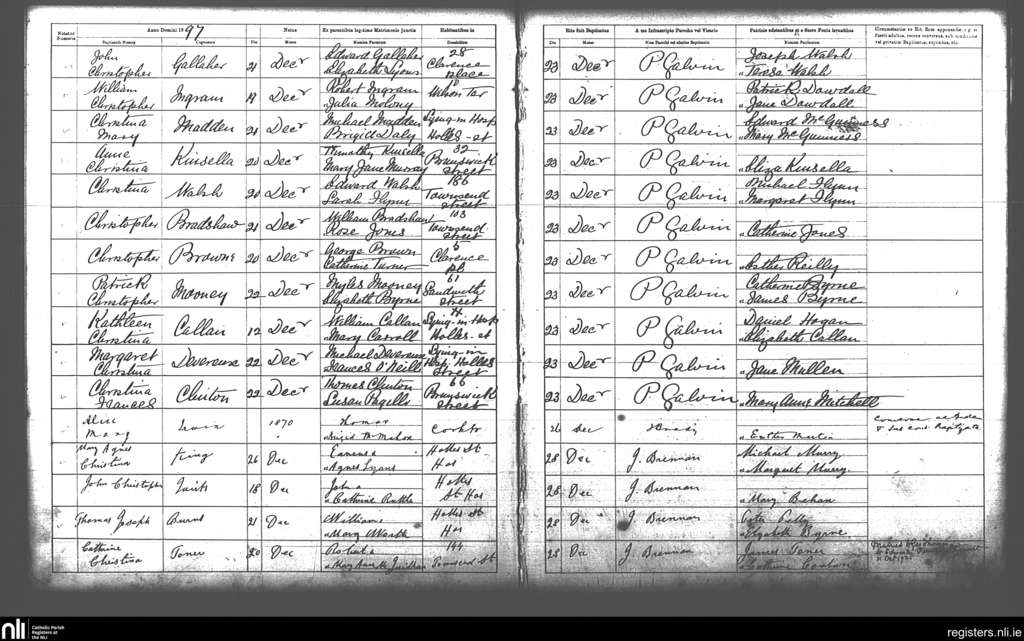 Anno Domini 1897
Natus
Ex parentibus legitimo Matrimonio junctis
Habitantibus in
Baptizandi Nomen Cognomen Die Mense Nomina Parentum Domicilium
John Christopher Gallaher 21 Decr Edward Gallaher Elizabeth Lyons 25 Clarence place
William Christopher Ingram 17 Decr Robert Ingram Julia Molony Wilson Ter
Christina Mary Madden 21 Decr Michael Madden Brigid Daly Lying-in Hosp Holles-st
Anne Christina Kinsella 20 Decr Timothy Kinsella Mary Jane Murray 32 Brunswick street
Christina Walsh 20 Decr Edward Walsh Sarah Flynn 186 Townsend street
Christopher Bradshaw 21 Decr William Bradshaw Rose Jones 103 Townsend street
Christopher Browne 20 Decr George Brown Catherine Turner 5 Clarence pl
Patrick Christopher Mooney 22 Decr Myles Mooney Elizabeth Byrne 61 Sandwith street
Kathleen Christina Callan 12 Decr William Callan Mary Carroll Lying-in Hosp Holles-st
Margaret Christina Devereuse 22 Decr Michael Devereuse Frances O'Neill Lying-in Hosp Holles Street
Christina Frances Clinton 22 Decr Thomas Clinton Susan 66 Brunswick street
Mary 1870 Thomas Brigid McMahon
Mary Agnes Christina King 26 Dec Eamens Agnes Lyons Holles St Hos
John Christopher 18 Dec John Catherine Holles St Hos
Thomas Joseph Burns 21 Dec William Mary Holles St Hos
Catherine Christina Toner 20 Dec Robert Mary Anne 144 Townsend St
Rite fuit Baptizatus
A me Infrascripto Parocho vel Vicario
Patrinis adstantibus et e Sacro Fonte levantibus
Die Mense Nomen Parochi vel alterius Baptizantis Nomina Patrinorum
23 Decr P Galvin Joseph Walsh Teresa Walsh
23 Decr P Galvin Patrick Dowdall Jane Dowdall
23 Decr P Galvin Edward McGuinness Mary McGuinness
23 Decr P Galvin Eliza Kinsella
23 Decr P Galvin Michael Flynn Margaret Flynn
23 Decr P Galvin Catherine Jones
23 Decr P Galvin Esther Reilly
23 Decr P Galvin Catherine Byrne James Byrne
23 Decr P Galvin Daniel Hogan Elizabeth Callan
23 Decr P Galvin Jane Mullen
23 Decr P Galvin Mary Anne Mitchell
26 Dec Brady Esther Martin
28 Dec J. Brennan Michael Murry Margaret Murry
28 Dec J. Brennan Mary Behan
28 Dec J. Brennan Peter Elizabeth Byrne
28 Dec J. Brennan James Toner
nli Catholic Parish Registers at the NLI
registers.nli.ie